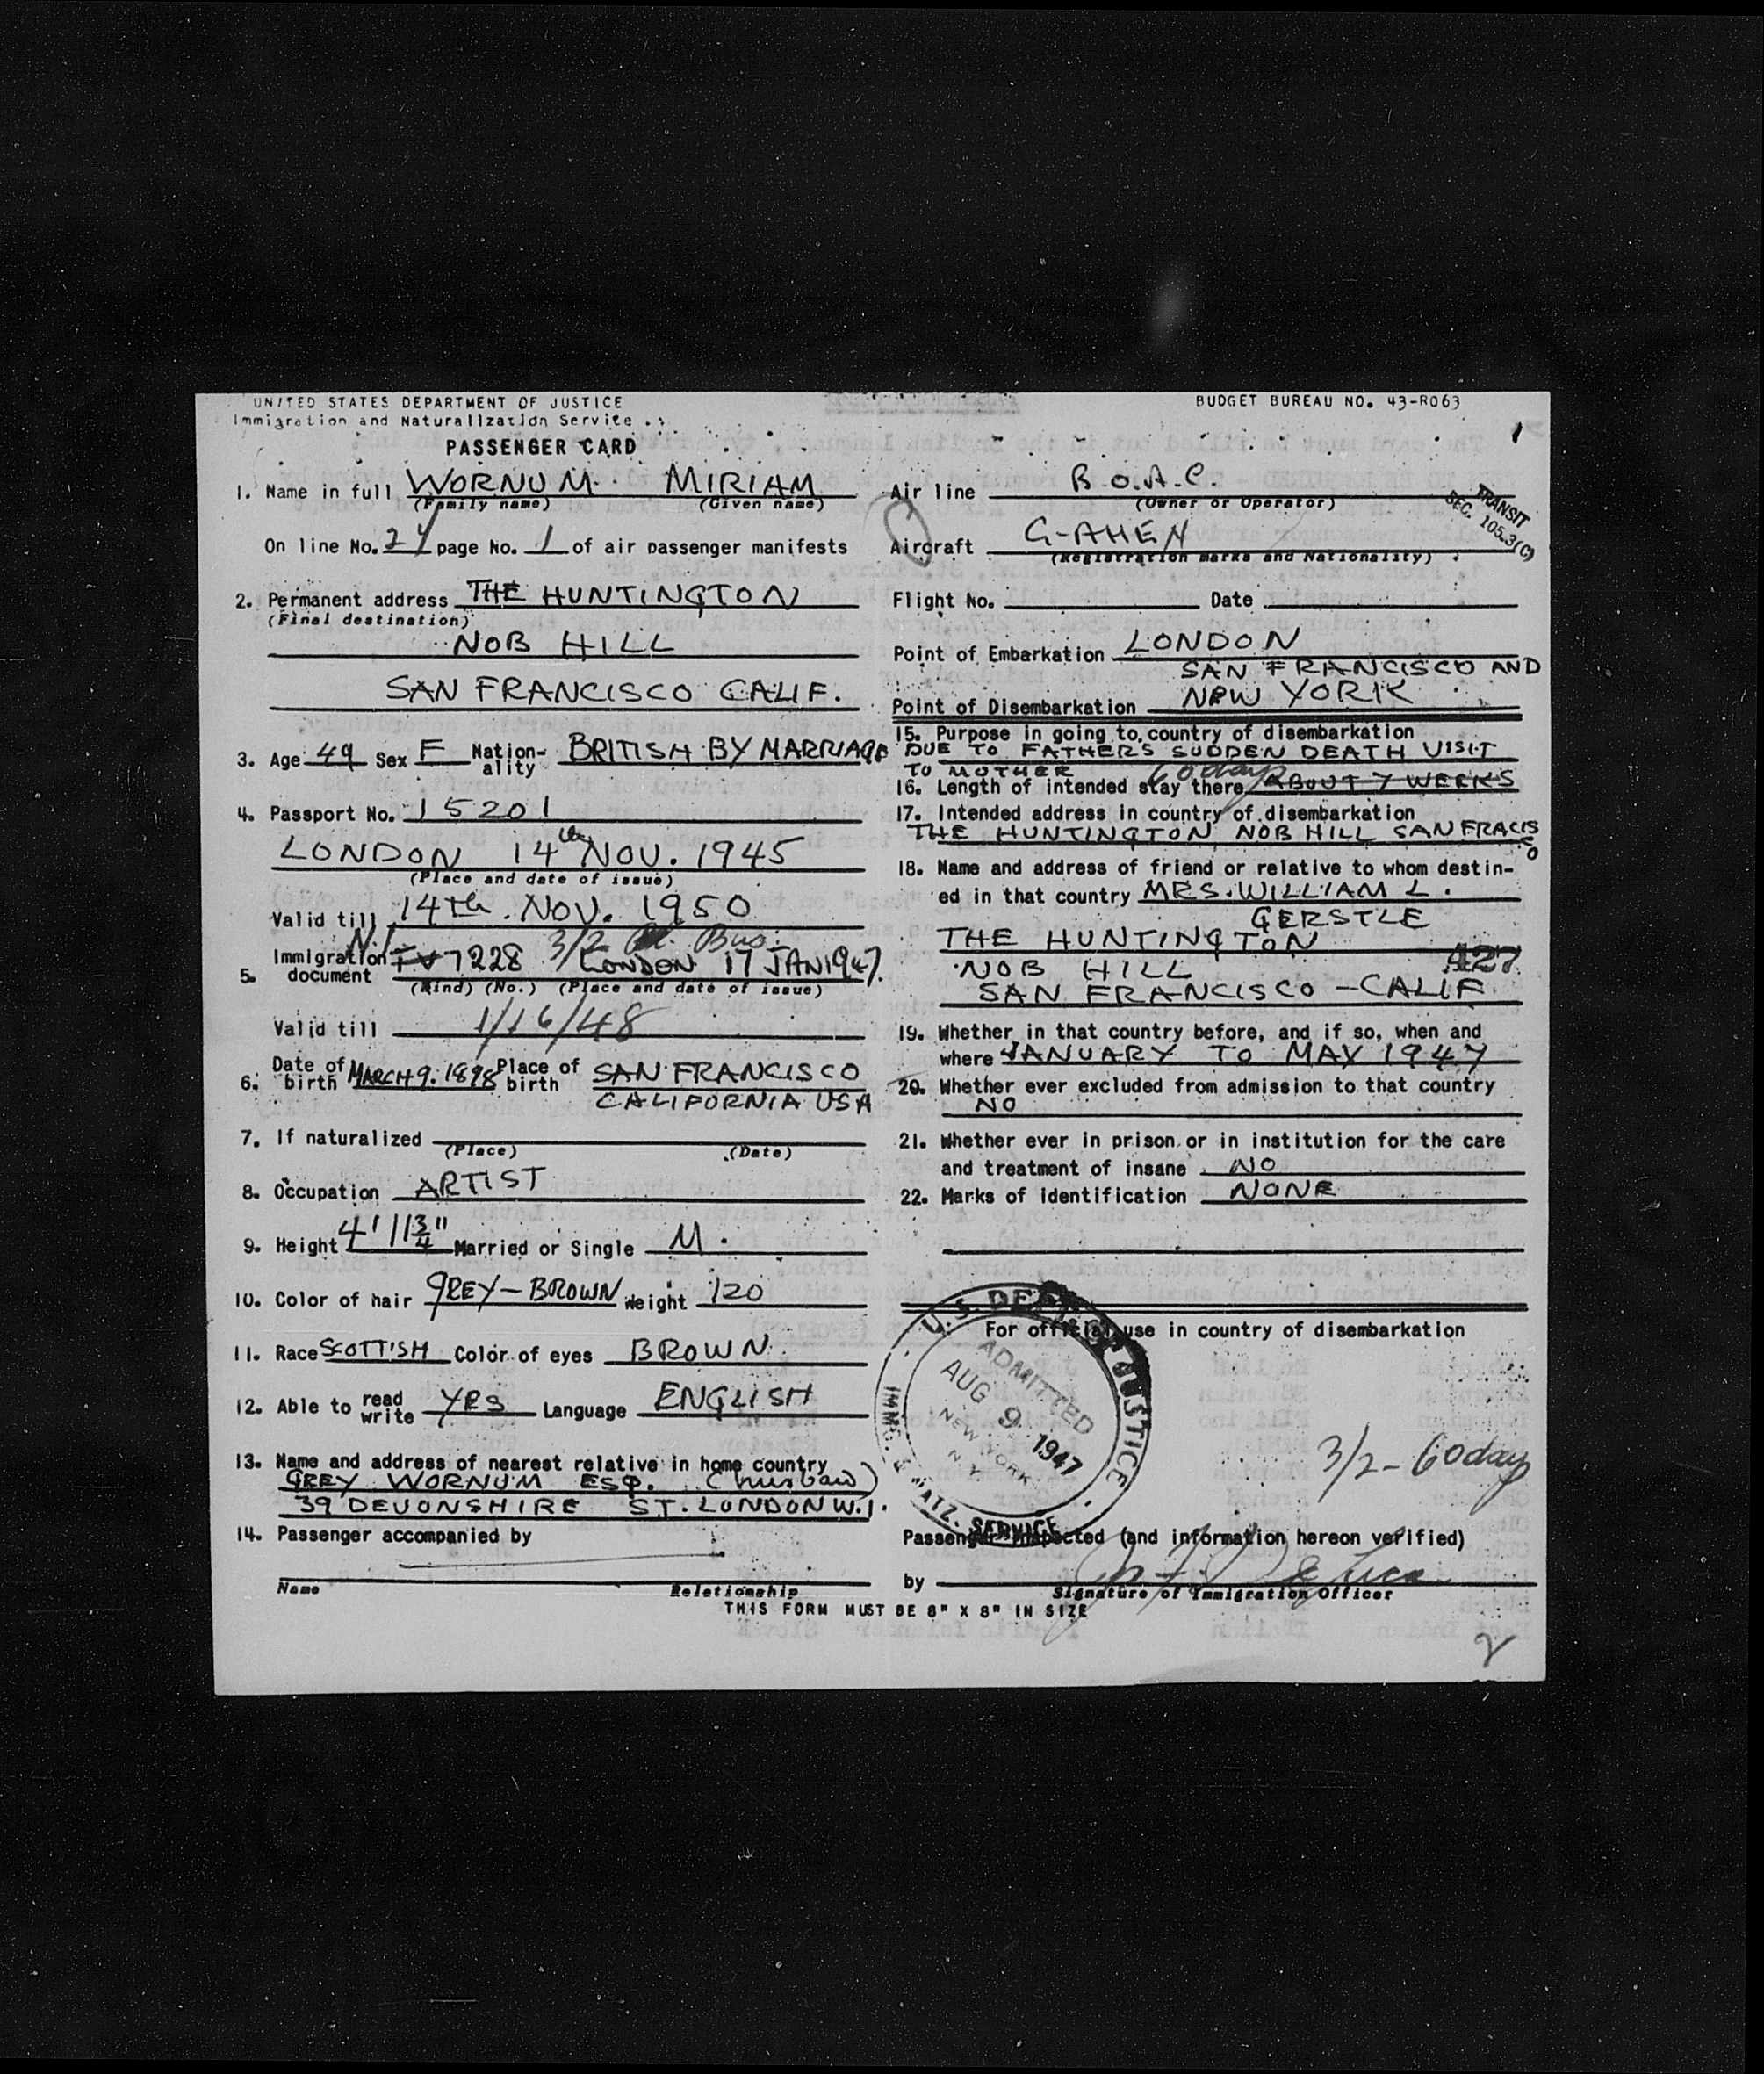 UNITED STATES DEPARTMENT OF JUSTICE
Immigration and Naturalization Service
PASSENGER CARD
1. Name in full WORNUM. MIRIAM
(Family name) (Given name)
On line No. 24 page No. 1 of air passenger manifests
2. Permanent address THE HUNTINGTON
(Final destination)
NOB HILL
SAN FRANCISCO CALIF.
3. Age 49 Sex F Nation-ality BRITISH BY MARRIAGE
4. Passport No. 15201
LONDON 14th NOV. 1945
(Place and date of issue)
Valid till 14th. NOV. 1950
N.I. 3/2 Bus.
5. Immigration document 7228 LONDON 17 JAN 1947.
(Kind) (No.) (Place and date of issue)
Valid till 1/16/48
6. Date of birth MARCH 9. 1898 Place of birth SAN FRANCISCO
CALIFORNIA USA
7. If naturalized
(Place) (Date)
8. Occupation ARTIST
9. Height 4' 11 3/4" Married or Single M.
10. Color of hair GREY-BROWN Weight 120
11. Race SCOTTISH Color of eyes BROWN
12. Able to read write YES Language ENGLISH
13. Name and address of nearest relative in home country
GREY WORNUM ESQ. (husband)
39 DEVONSHIRE ST. LONDON W.1.
14. Passenger accompanied by
Name Relationship
BUDGET BUREAU NO. 43-R063
1
Air line B.O.A.C.
(Owner or Operator)
TRANSIT
SEC. 105.3(C)
Aircraft G-AHEN
(Registration marks and Nationality)
Flight No. Date
Point of Embarkation LONDON
SAN FRANCISCO AND
Point of Disembarkation NEW YORK
15. Purpose in going to country of disembarkation
DUE TO FATHERS SUDDEN DEATH VISIT
TO MOTHER 60 days
16. Length of intended stay there ABOUT 7 WEEKS
17. Intended address in country of disembarkation
THE HUNTINGTON, NOB HILL SAN FRACIS
O
18. Name and address of friend or relative to whom destin-
ed in that country MRS. WILLIAM L.
GERSTLE
THE HUNTINGTON
NOB HILL 427
SAN FRANCISCO - CALIF.
19. Whether in that country before, and if so, when and
where JANUARY TO MAY 1947
20. Whether ever excluded from admission to that country
NO
21. Whether ever in prison or in institution for the care
and treatment of insane NO
22. Marks of identification NONE
For official use in country of disembarkation
U.S. DEPT. OF JUSTICE
ADMITTED
AUG 9 1947
NEW YORK
N.Y.
IMMG. & NATZ. SERVICE
3/2 - 60 days
Passenger inspected (and information hereon verified)
by
Signature of Immigration Officer
THIS FORM MUST BE 8" X 8" IN SIZE
2